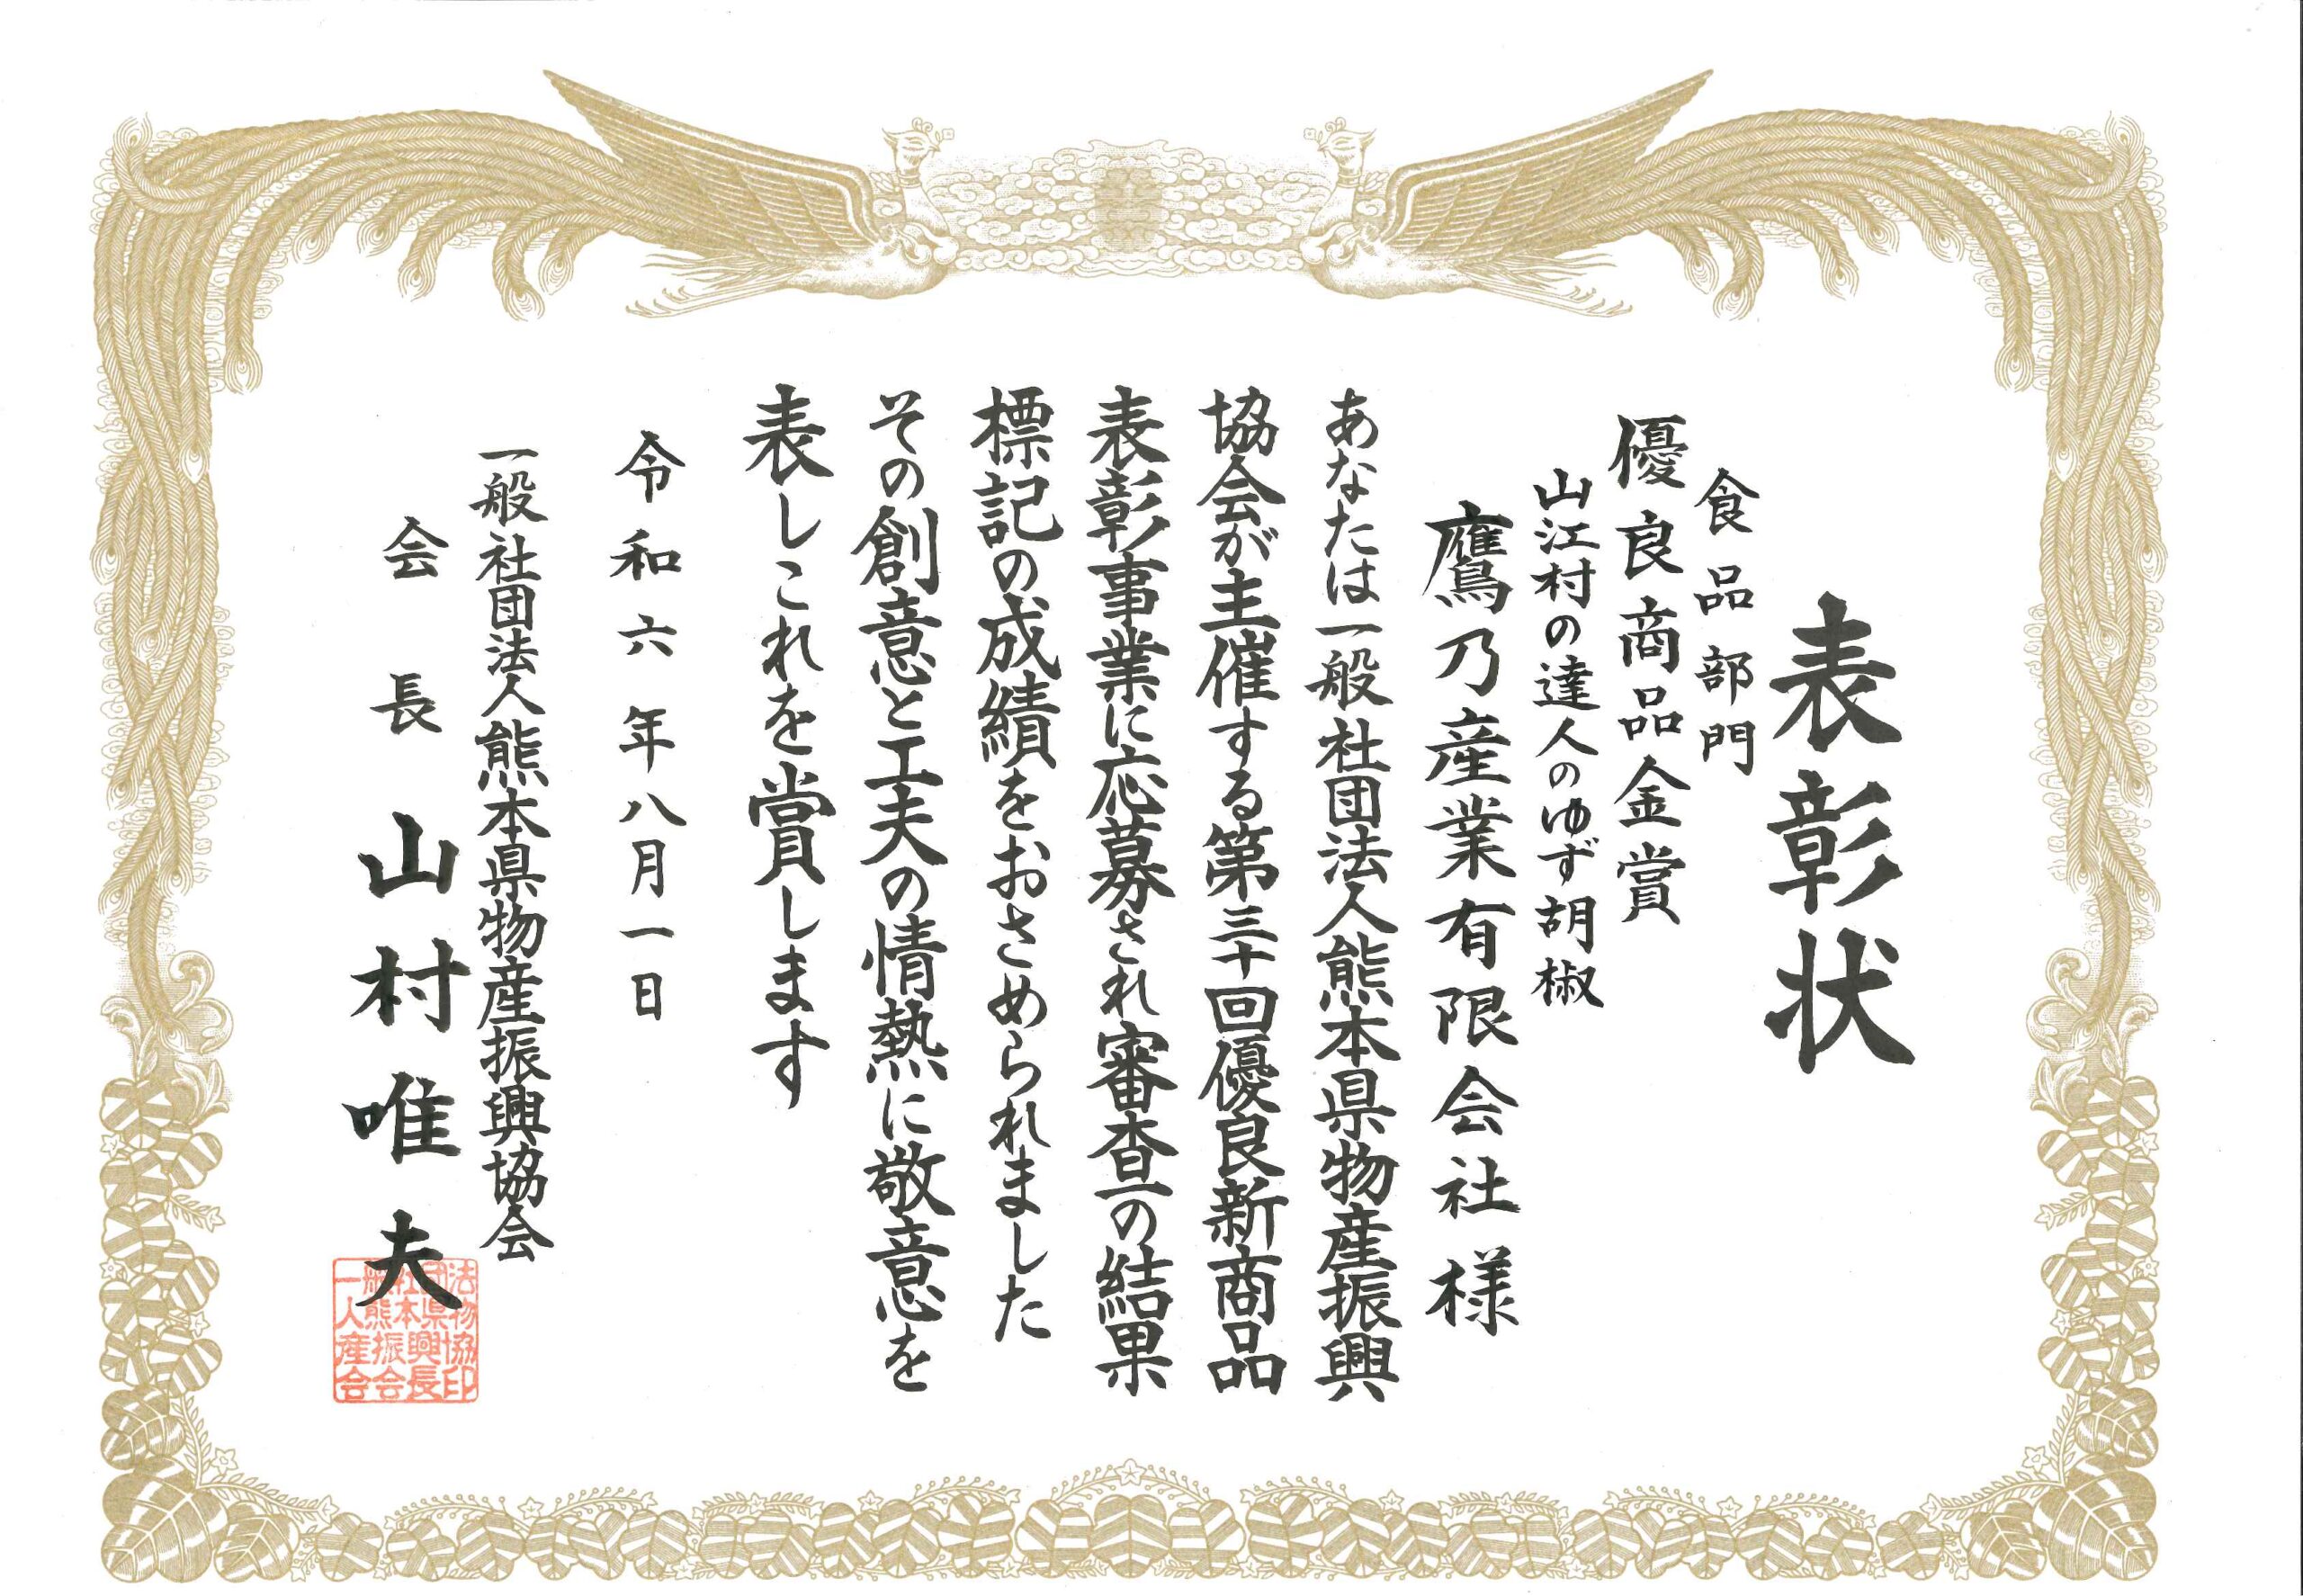 表彰状
食品部門
優良商品金賞
山江村の達人のゆず胡椒
鷹乃産業有限会社様
あなたは一般社団法人熊本県物産振興
協会が主催する第三十回優良新商品
表彰事業に応募され審査の結果
標記の成績をおさめられました
その創意と工夫の情熱に敬意を
表しこれを賞します
令和六年八月一日
一般社団法人熊本県物産振興協会
会長 山村唯夫
一般社団法
人熊本県物
産振興協
会会長印